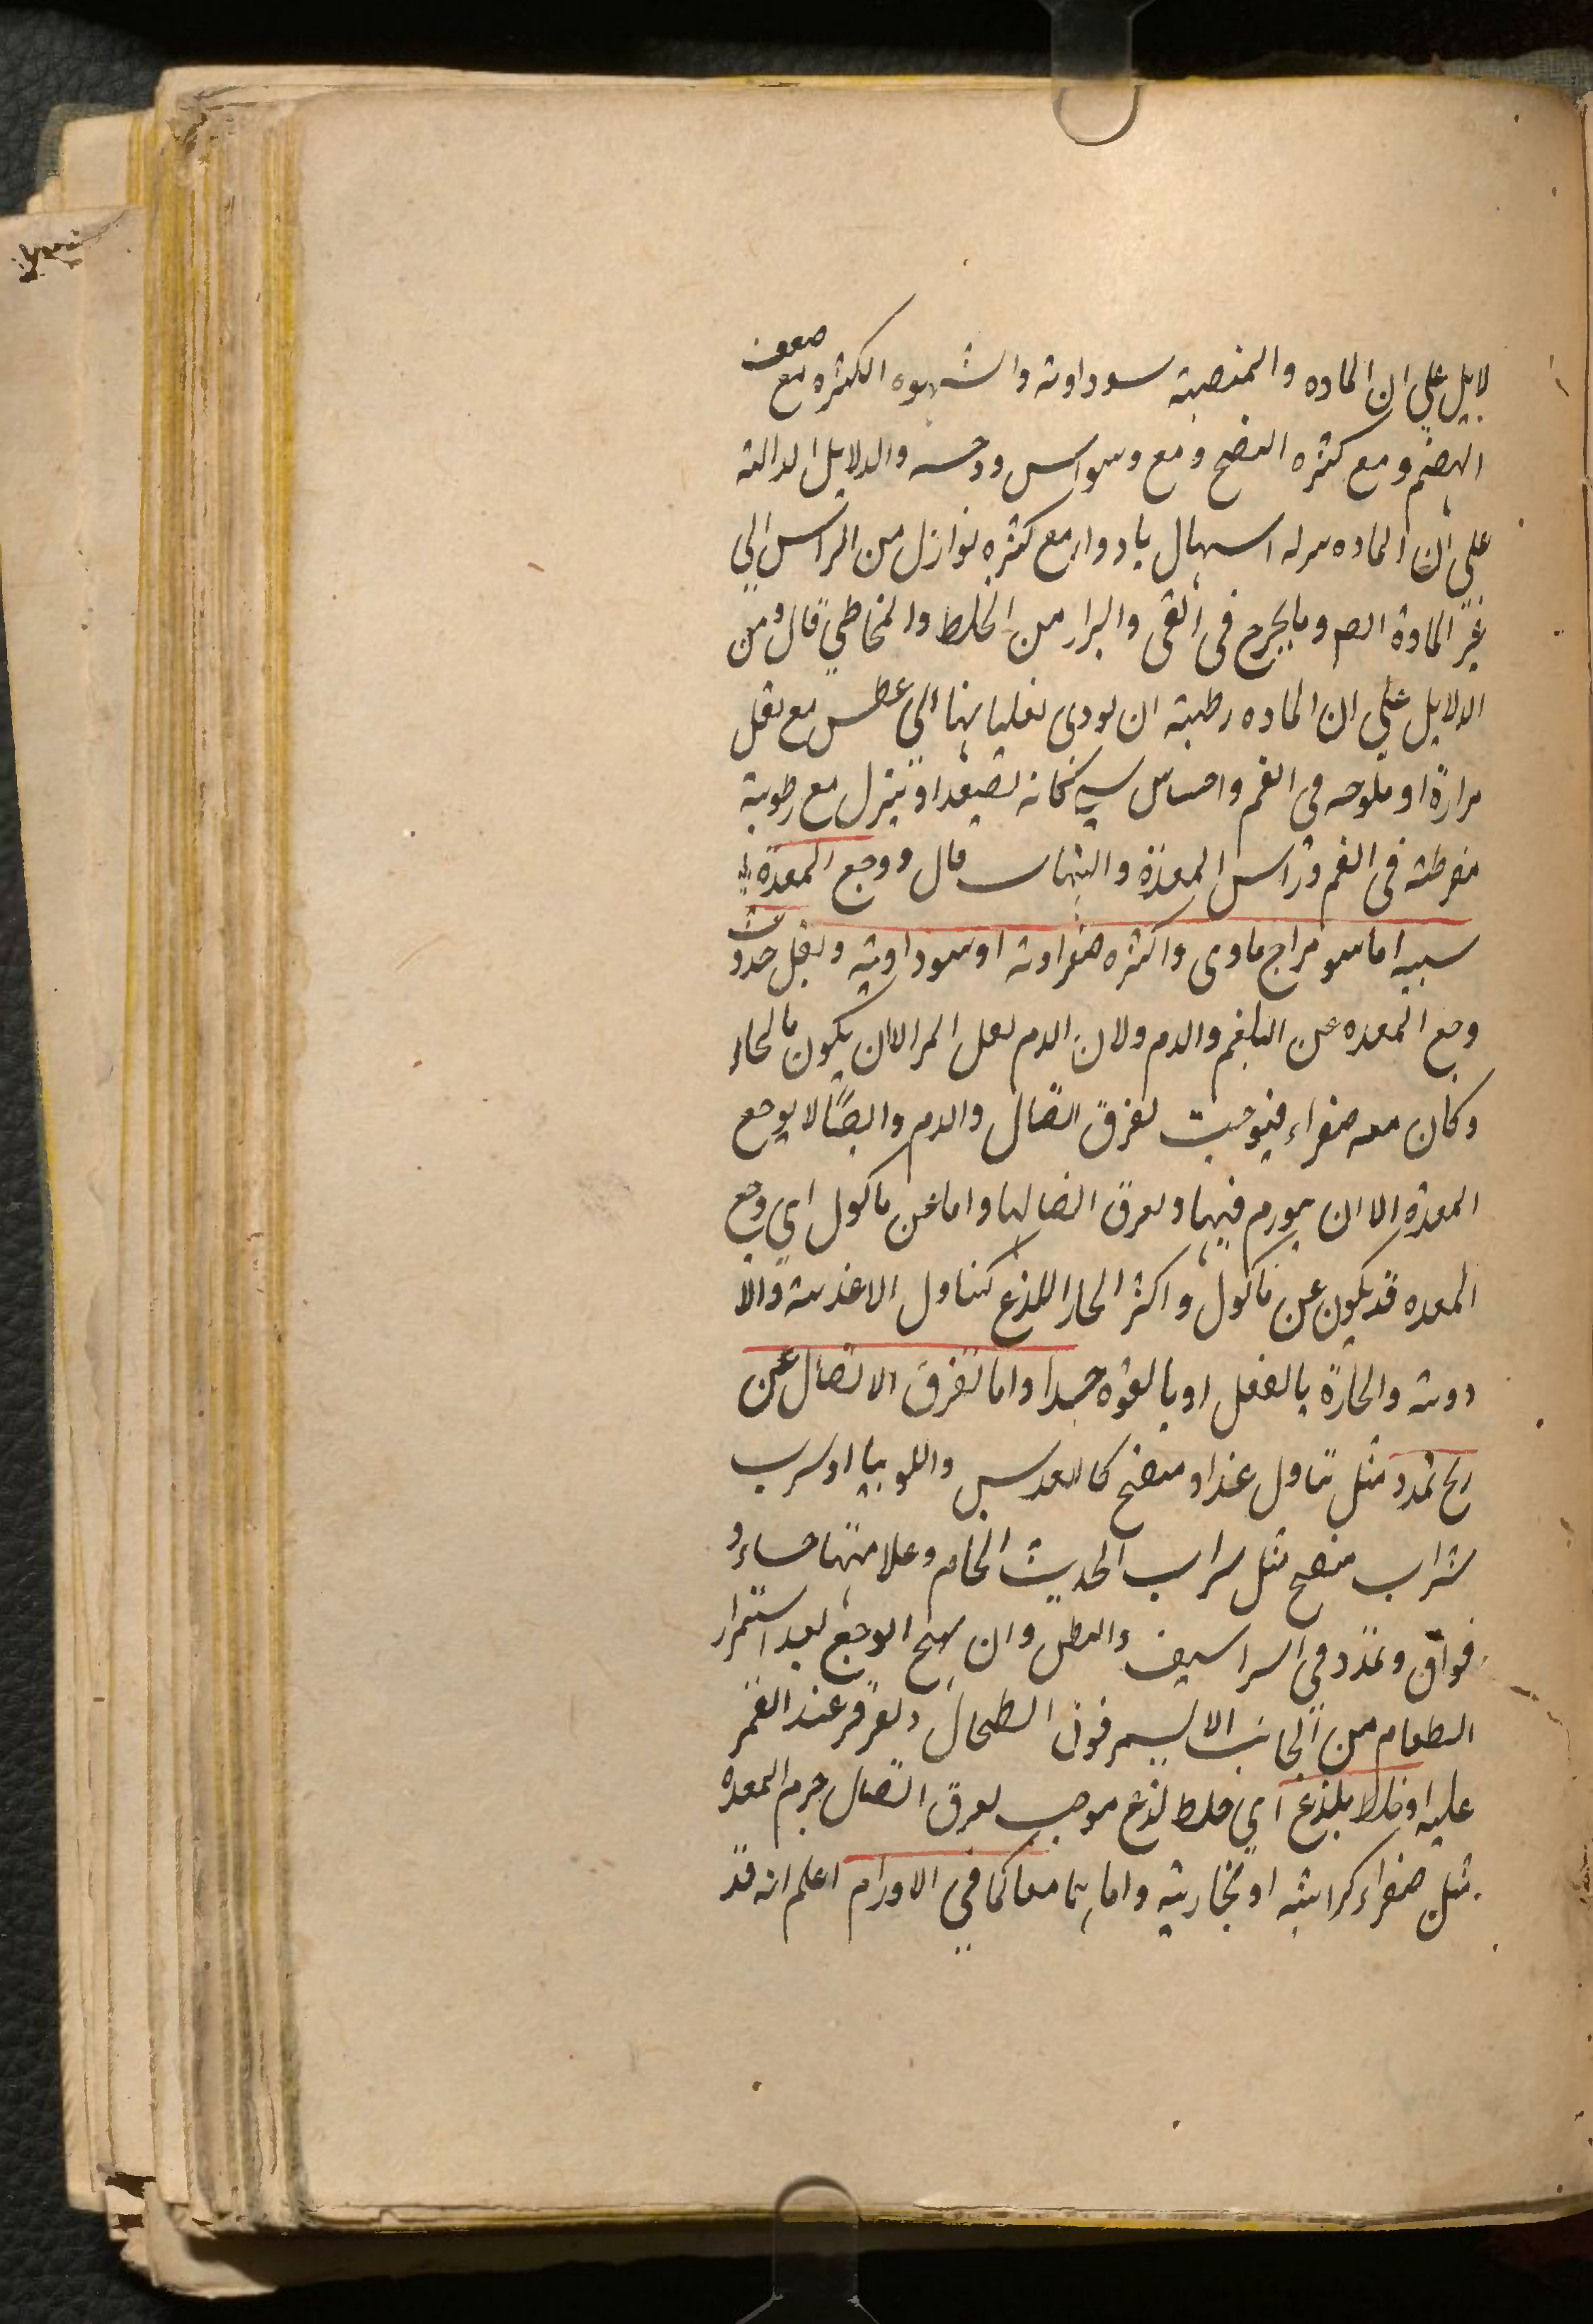 لايل علي ان الماده والمنصبة سوداوية والشهوه الكثره مع ضعف
الهضم ومع كثره النفخ ومع وسواس ووحشه والدلايل الدالة
علي ان الماده نزله اسهال بادوار مع كثره نوازل من الراس الي
غير المادة ايضا وما يخرج في القي والبراز من الخلط والمخاطي قال ومن
الدلايل علي ان الماده رطبة ان يودى تقلبا بها الي عطش مع ثقل
مرارة او ملوحه في الفم واحساس شي كانه تصعد او ينزل مع رطوبة
مفرطة في الفم وراس المعدة والتهاب قال ووجع المعدة
سببه اما سو مزاج مادى واكثره صفراوية او سوداوية ويقل حدوث
وجع المعده عن البلغم والدم ولان الدم يقل المر الا ان يكون مالحا
وكان معه صفراء فيوجب تفرق اتصال والدم وايضا لا يوجع
المعدة الا ان يورم فيها وتفرق اتصالها واما عن ماكول اي وجع
المعده قد يكون عن ماكول واكثر الحار اللذع كتناول الاغذية والا
دوية والحارة بالفعل او بالقوه جدا واما تفرق الاتصال عن
ريح تمدد مثل تناول غذاء منفخ كالعدس واللوبيا او شرب
شراب منفخ مثل شراب الحديث الخام وعلامتها جساء و
فواق وتمدد في الشراسيف والبطن وان يهيج الوجع بعد استمرار
الطعام من الجانب الايسر فوق الطحال ويقرقر عند الغمز
عليه او خلط يلذع اي خلط لذع موجب تفرق اتصال جرم المعده
مثل صفراء كراثية او زنجارية واما بهما معا كما في الاورام اعلم انه قد